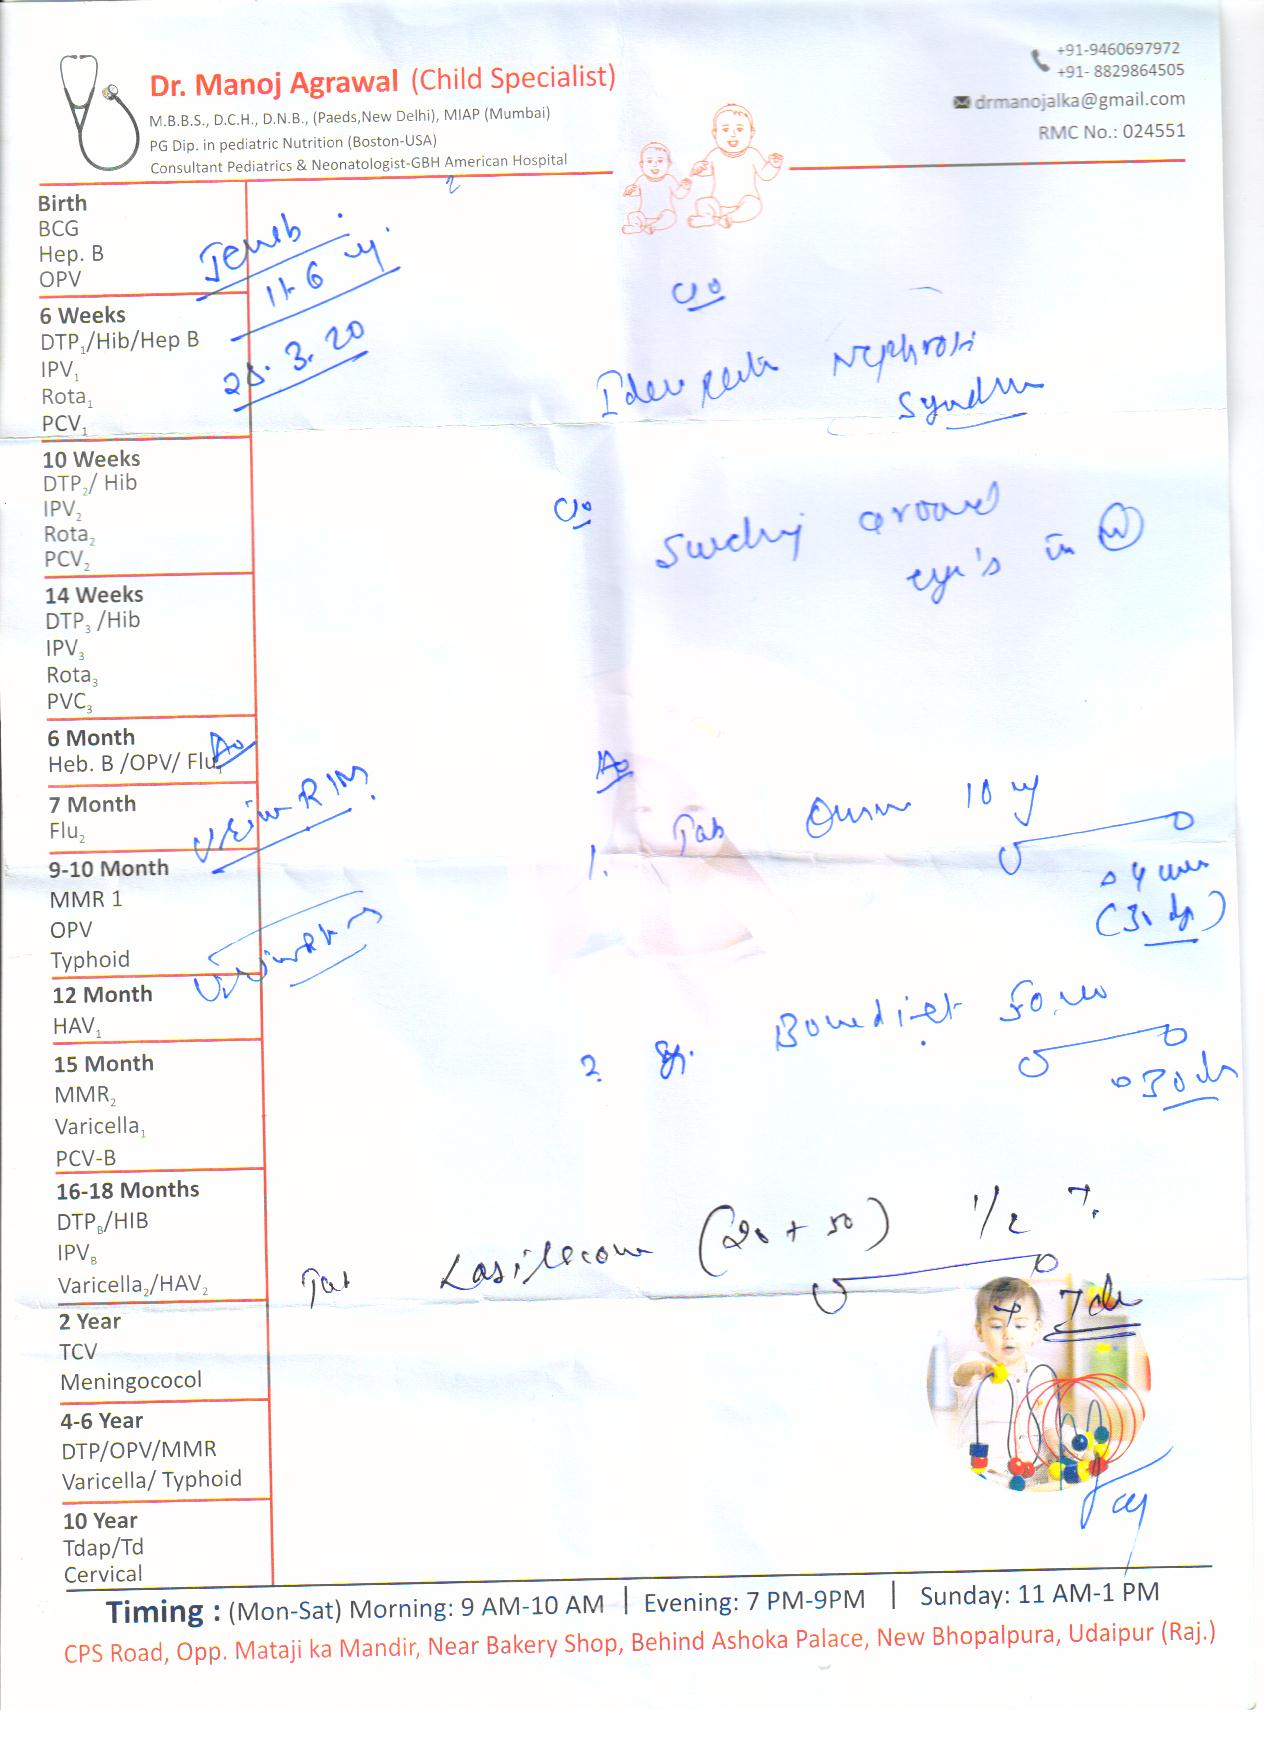 Dr. Manoj Agrawal (Child Specialist)
M.B.B.S., D.C.H., D.N.B., (Paeds,New Delhi), MIAP (Mumbai)
PG Dip. in pediatric Nutrition (Boston-USA)
Consultant Pediatrics & Neonatologist-GBH American Hospital
+91-9460697972
+91- 8829864505
drmanojalka@gmail.com
RMC No.: 024551
Birth
BCG
Hep. B
OPV
6 Weeks
DTP1/Hib/Hep B
IPV1
Rota1
PCV1
10 Weeks
DTP2/ Hib
IPV2
Rota2
PCV2
14 Weeks
DTP3 /Hib
IPV3
Rota3
PVC3
6 Month
Heb. B /OPV/ Flu1
7 Month
Flu2
9-10 Month
MMR 1
OPV
Typhoid
12 Month
HAV1
15 Month
MMR2
Varicella1
PCV-B
16-18 Months
DTPB/HIB
IPVB
Varicella2/HAV2
2 Year
TCV
Meningococol
4-6 Year
DTP/OPV/MMR
Varicella/ Typhoid
10 Year
Tdap/Td
Cervical
3.20
c/o
Nephrotic
Syndrome
c/o
Swelling around
eye's in M
Urine R/M
1. Tab 10
2 Syp.
Tab (20 + 50) 1/2
Timing : (Mon-Sat) Morning: 9 AM-10 AM | Evening: 7 PM-9PM | Sunday: 11 AM-1 PM
CPS Road, Opp. Mataji ka Mandir, Near Bakery Shop, Behind Ashoka Palace, New Bhopalpura, Udaipur (Raj.)